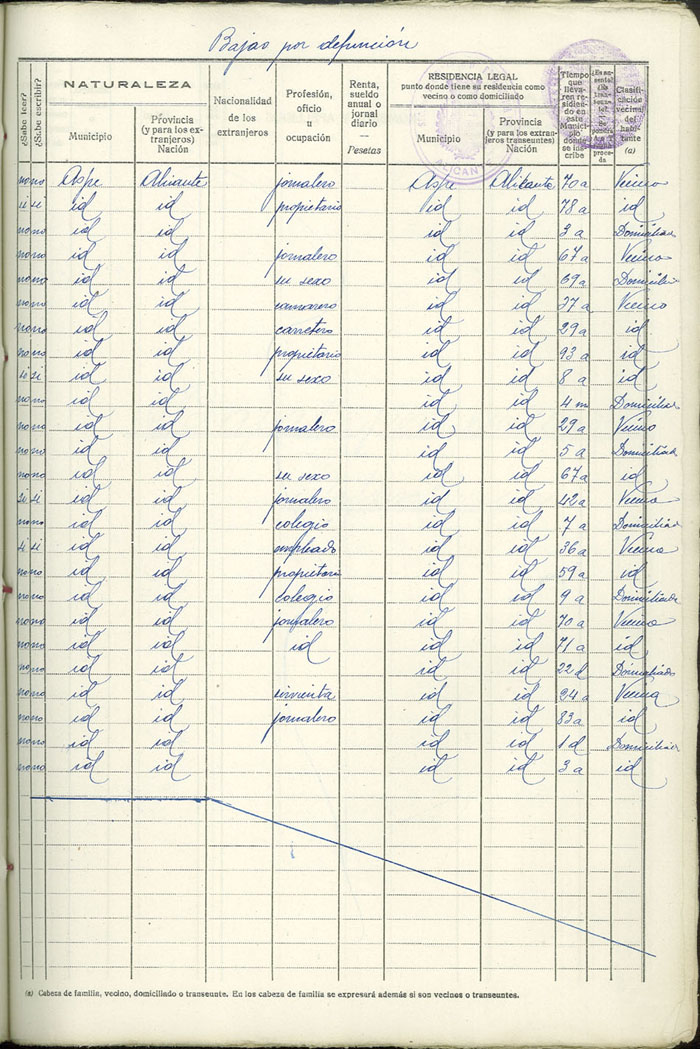 Bajas por defunción
¿Sabe leer?
¿Sabe escribir?
NATURALEZA
Municipio
Provincia (y para los extranjeros) Nación
Nacionalidad de los extranjeros
Profesión, oficio u ocupación
Renta, sueldo anual o jornal diario — Pesetas
RESIDENCIA LEGAL
punto donde tiene su residencia como vecino o como domiciliado
Municipio
Provincia (y para los extranjeros transeuntes) Nación
Tiempo que llevaren residiendo en este Municipio donde se inscribe
Clasificación vecinal del habitante (a)
ALICANTE
no no Aspe Alicante jornalero Aspe Alicante 70 a Vecino
si si id id propietario id id 78 a id
no no id id id id 3 a Domiciliada
no no id id jornalero id id 67 a Vecino
no no id id su sexo id id 69 a Domicilia
no no id id camarero id id 27 a Vecino
no no id id carretero id id 29 a id
no no id id propietario id id 93 a id
si si id id su sexo id id 8 a id
no no id id id id 4 m Domiciliad
no no id id jornalero id id 29 a Vecino
no no id id id id 5 a Domiciliada
no no id id su sexo id id 67 a id
si si id id jornalero id id 42 a Vecino
no no id id colegio id id 7 a Domiciliad
si si id id empleado id id 36 a Vecino
no no id id propietario id id 59 a id
no no id id Colegio id id 9 a Domiciliada
no no id id jornalero id id 70 a Vecino
no no id id id id id 71 a id
no no id id id id 22 d Domiciliado
no no id id sirvienta id id 24 a Vecina
no no id id jornalero id id 83 a id
no no id id id id 1 d Domiciliad
no no id id id id 3 a id
(a) Cabeza de familia, vecino, domiciliado o transeunte. En los cabeza de familia se expresará además si son vecinos o transeuntes.